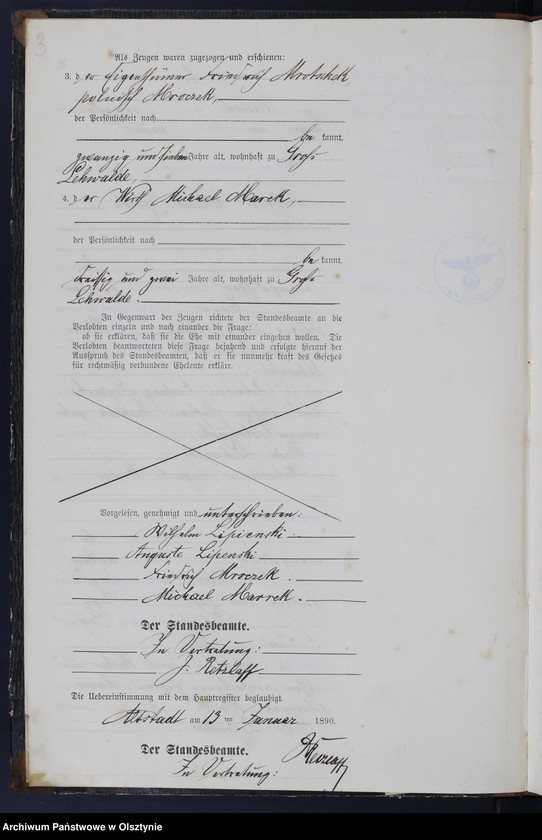 3
Als Zeugen waren zugezogen und erschienen:
3. der Eigenthümer Friedrich Mrotscheck
polnisch Mroczek,
der Persönlichkeit nach
be kannt,
zwanzig und sieben Jahre alt, wohnhaft zu Groß
Lehwalde,
4. der Wirth Michael Marek,
der Persönlichkeit nach
be kannt,
dreißig und zwei Jahre alt, wohnhaft zu Groß
Lehwalde.
In Gegenwart der Zeugen richtete der Standesbeamte an die
Verlobten einzeln und nach einander die Frage:
ob sie erklären, daß sie die Ehe mit einander eingehen wollen. Die
Verlobten beantworteten diese Frage bejahend und erfolgte hierauf der
Ausspruch des Standesbeamten, daß er sie nunmehr kraft des Gesetzes
für rechtmäßig verbundene Eheleute erkläre.
Vorgelesen, genehmigt und unterschrieben:
Wilhelm Lipienski
Auguste Lipenski
Friedrich Mroczek.
Michael Marrek.
Der Standesbeamte.
In Vertretung:
J. Retzlaff
Die Uebereinstimmung mit dem Hauptregister beglaubigt.
Altstadt am 13 ten Januar 1890.
Der Standesbeamte.
In Vertretung:
Retzlaff
Archiwum Państwowe w Olsztynie